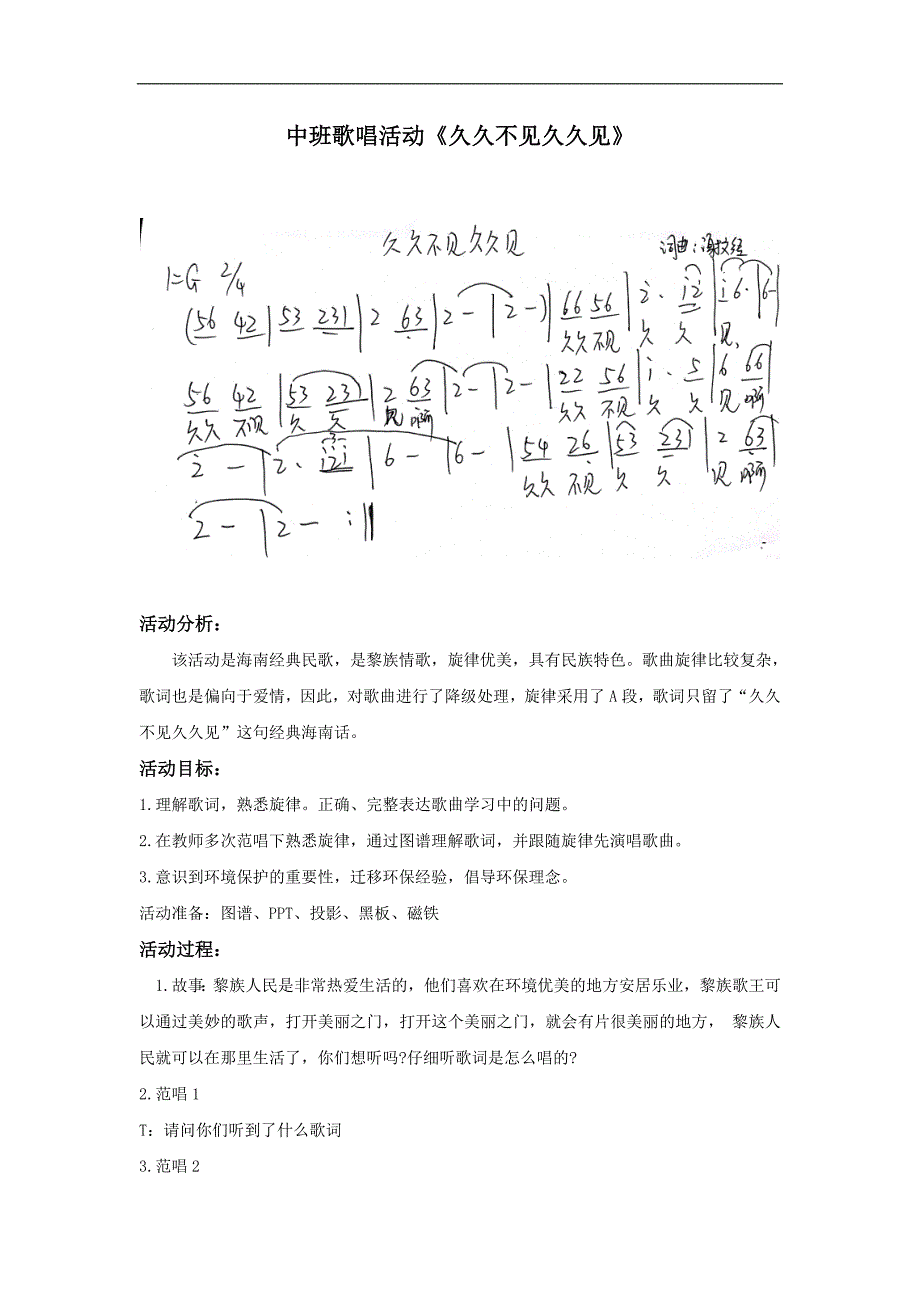 中班歌唱活动《久久不见久久见》
久久不见久久见
词曲：
1=G 2/4
(56 42 | 53 231 | 2 63 | 2 - | 2 -) | 66 56 | 2̇· i2̇ | i 6· | 6 - |
久久 不见 久 久 见
56 42 | 53 231 | 2 63 | 2 - | 2 - | 22 56 | i· 5 | 6 66 |
久久 不见 久 久 见 啊 久久 不见 久 久 见 啊
2̇ - | 2̇· i2̇i | 6 - | 6 - | 54 26 | 53 231 | 2 63 |
久久 不见 久 久 见 啊
2 - | 2 - :‖
活动分析：
该活动是海南经典民歌，是黎族情歌，旋律优美，具有民族特色。歌曲旋律比较复杂，
歌词也是偏向于爱情，因此，对歌曲进行了降级处理，旋律采用了 A 段，歌词只留了“久久
不见久久见”这句经典海南话。
活动目标：
1.理解歌词，熟悉旋律。正确、完整表达歌曲学习中的问题。
2.在教师多次范唱下熟悉旋律，通过图谱理解歌词，并跟随旋律先演唱歌曲。
3.意识到环境保护的重要性，迁移环保经验，倡导环保理念。
活动准备：图谱、PPT、投影、黑板、磁铁
活动过程：
1.故事：黎族人民是非常热爱生活的，他们喜欢在环境优美的地方安居乐业，黎族歌王可
以通过美妙的歌声，打开美丽之门，打开这个美丽之门，就会有片很美丽的地方， 黎族人
民就可以在那里生活了，你们想听吗?仔细听歌词是怎么唱的?
2.范唱 1
T：请问你们听到了什么歌词
3.范唱 2